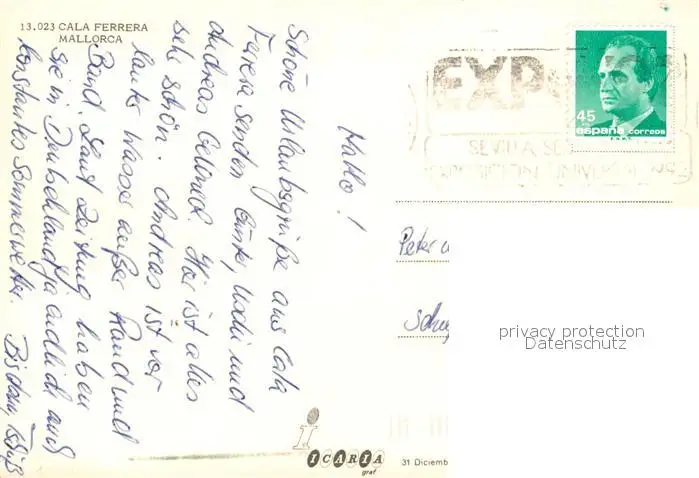 13.023 CALA FERRERA
MALLORCA
Hallo!
Schöne Urlaubsgrüße aus Cala
Ferera senden und
Andreas Hier ist alles
sehr schön. Andreas ist vor
lauter Wasser außer Rand und
Band. Laut Zeitung haben
Sie in Deutschland ja endlich auch
konstantes Sommerwetter. Bis dann, Tschüß
EXPO
SEVILLA
EXPOSICION UNIVERSAL
45
españa correos
Peter
Schu
privacy protection
Datenschutz
i
ICARIA
graf
31 Diciemb